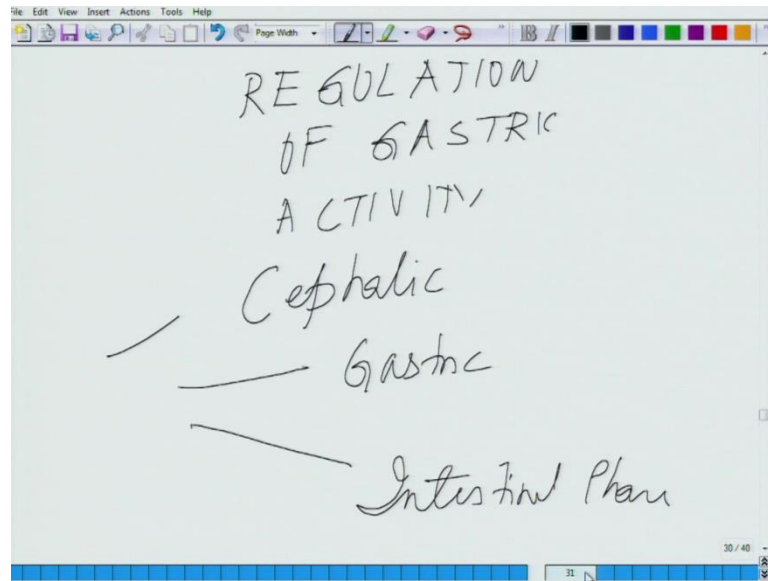 File Edit View Insert Actions Tools Help
Page Width B I
REGULATION
OF GASTRIC
ACTIVITY
Cephalic
Gastric
Intestinal Phase
30 / 40
31